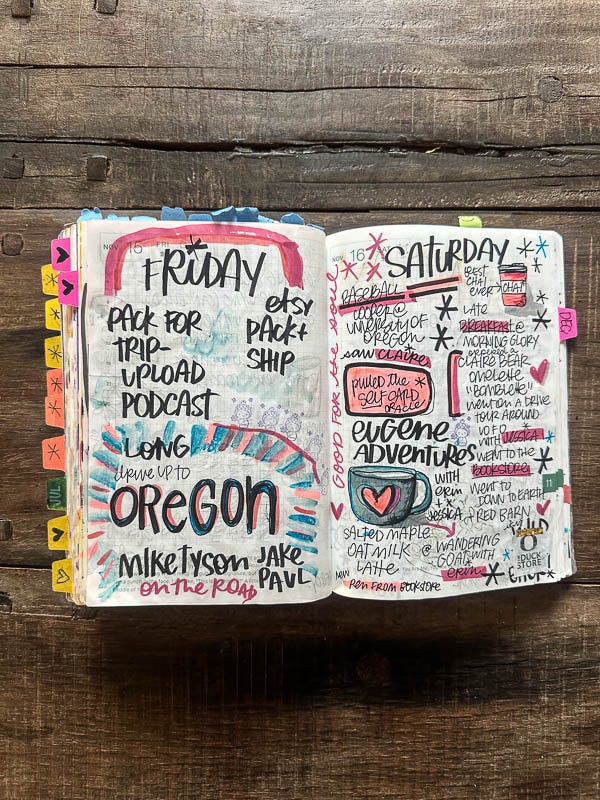 NOV 15 FRI
FRIDAY
PACK FOR
TRIP-
UPLOAD
PODCAST
etsy
PACK+
SHIP
LONG
drive up to
OREGON
MIKE TYSON
JAKE
PAUL
on the ROAD
JUL
NOV 16
SATURDAY
GOOD FOR the soul
BASEBALL
COOPER @
UNIVERSITY OF
OREGON
SAW CLAIRE
pulled the
SELF CARD
ORACLE
EUGENE
ADVENTURES
WITH
erin
+
JESSICA
SALTED MAPLE
OAT MILK
LATTE
@ WANDERING
GOAT WITH
erin
NEW
PEN FROM BOOKSTORE
BEST
CHAI
EVER
CHAI
LATE
BREAKFAST @
MORNING GLORY
CLAIRE BEAR
omelette
"BOMBLETTE"
WENT ON A DRIVE
TOUR AROUND
U OF O
WITH JESSICA
WENT TO THE
BOOKSTORE
WENT TO
DOWN TO EARTH
+ RED BARN
THE DUCK
STORE
DEC
11